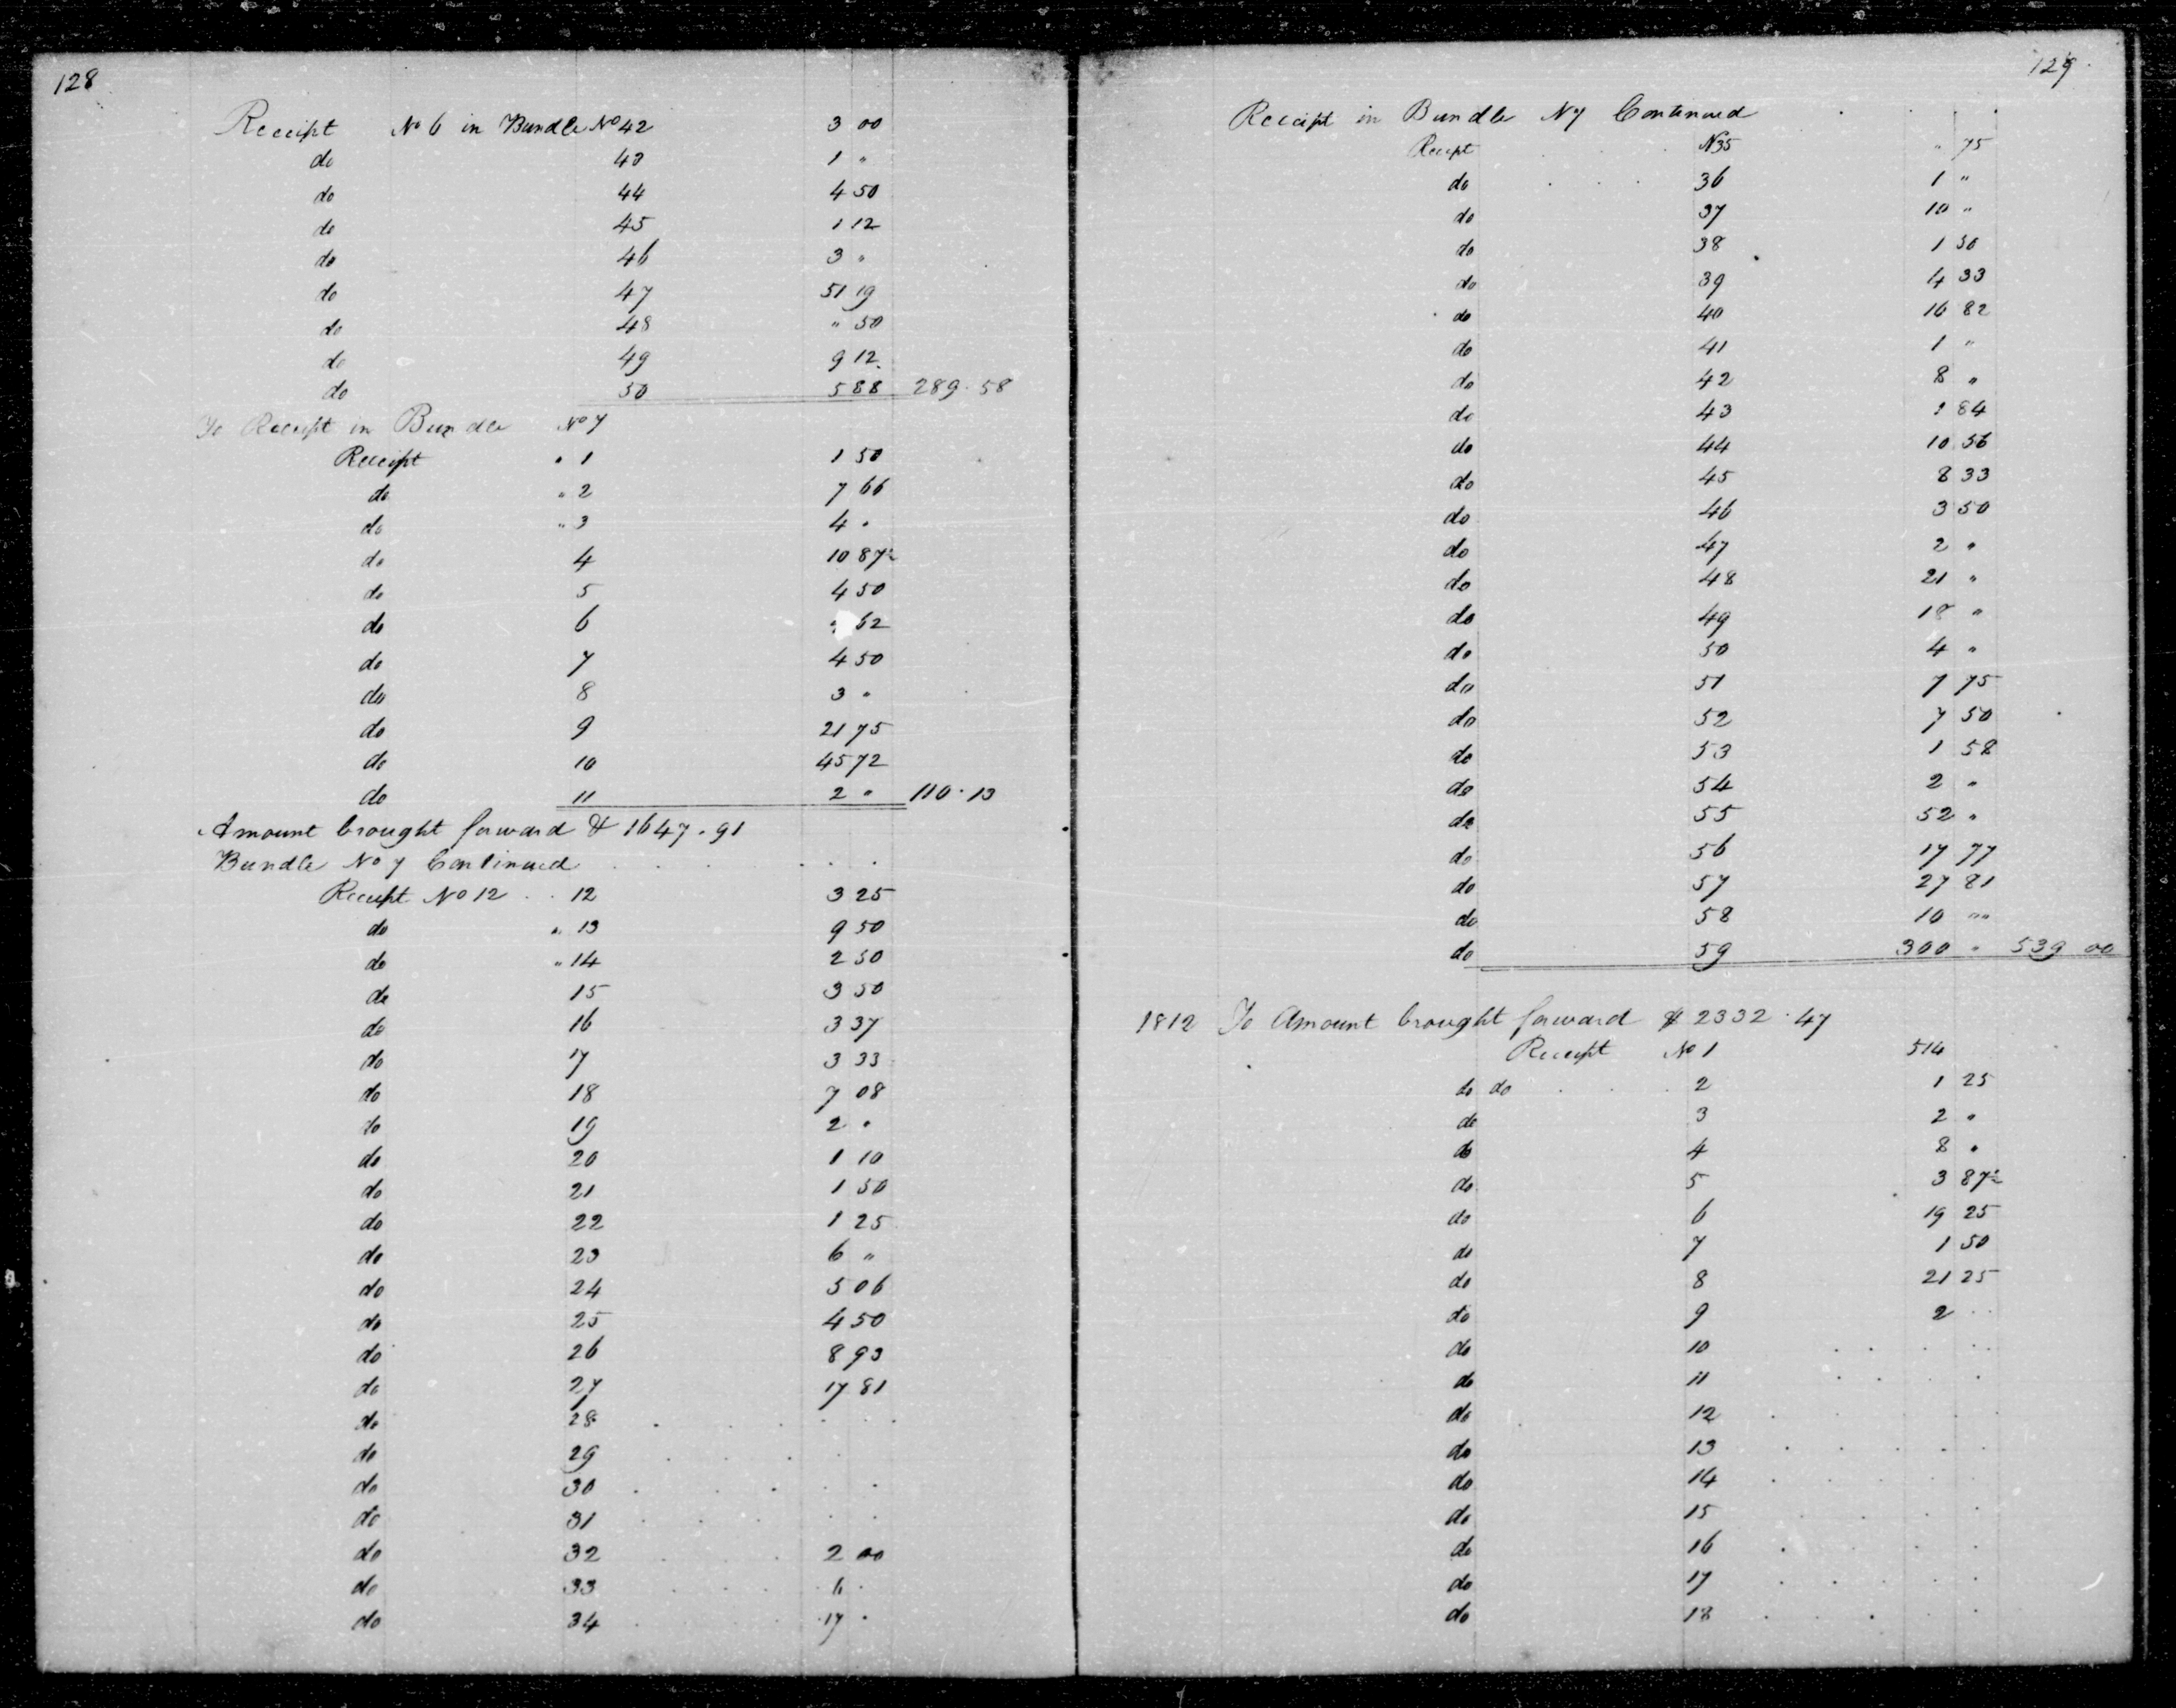 128
Receipt No 6 in Bundle No 42 3 00
do 43 1 "
do 44 4 50
do 45 1 12
do 46 3 "
do 47 51 19
do 48 " 50
do 49 9 12
do 50 5 88 289.58
To Receipt in Bundle No 7
Receipt " 1 1 50
do " 2 7 66
do " 3 4 "
do 4 10 87½
do 5 4 50
do 6 62
do 7 4 50
do 8 3 "
do 9 21 75
do 10 45 72
do 11 2 " 110.13
Amount brought forward $ 1647.91
Bundle No 7 Continued
Receipt No 12 12 3 25
do " 13 9 50
do " 14 2 50
do 15 3 50
do 16 3 37
do 17 3 33
do 18 7 08
do 19 2 "
do 20 1 10
do 21 1 50
do 22 1 25
do 23 6 "
do 24 5 06
do 25 4 50
do 26 8 93
do 27 17 81
do 28
do 29
do 30
do 31
do 32 2 00
do 33 6 "
do 34 17 "
129
Receipt in Bundle N 7 Continued
Recept N 35 " 75
do 36 1 "
do 37 10 "
do 38 1 50
do 39 4 33
do 40 16 82
do 41 1 "
do 42 8 "
do 43 84
do 44 10 56
do 45 8 33
do 46 3 50
do 47 2 "
do 48 21 "
do 49 18 "
do 50 4 "
do 51 7 75
do 52 7 50
do 53 1 58
do 54 2 "
do 55 52 "
do 56 17 77
do 57 27 81
do 58 10 ""
do 59 300 " 539 00
1812 To Amount brought forward $ 2332.47
Receipt No 1 514
do do 2 1 25
do 3 2 "
do 4 8 "
do 5 3 87½
do 6 19 25
do 7 1 50
do 8 21 25
do 9 2
do 10
do 11
do 12
do 13
do 14
do 15
do 16
do 17
do 18